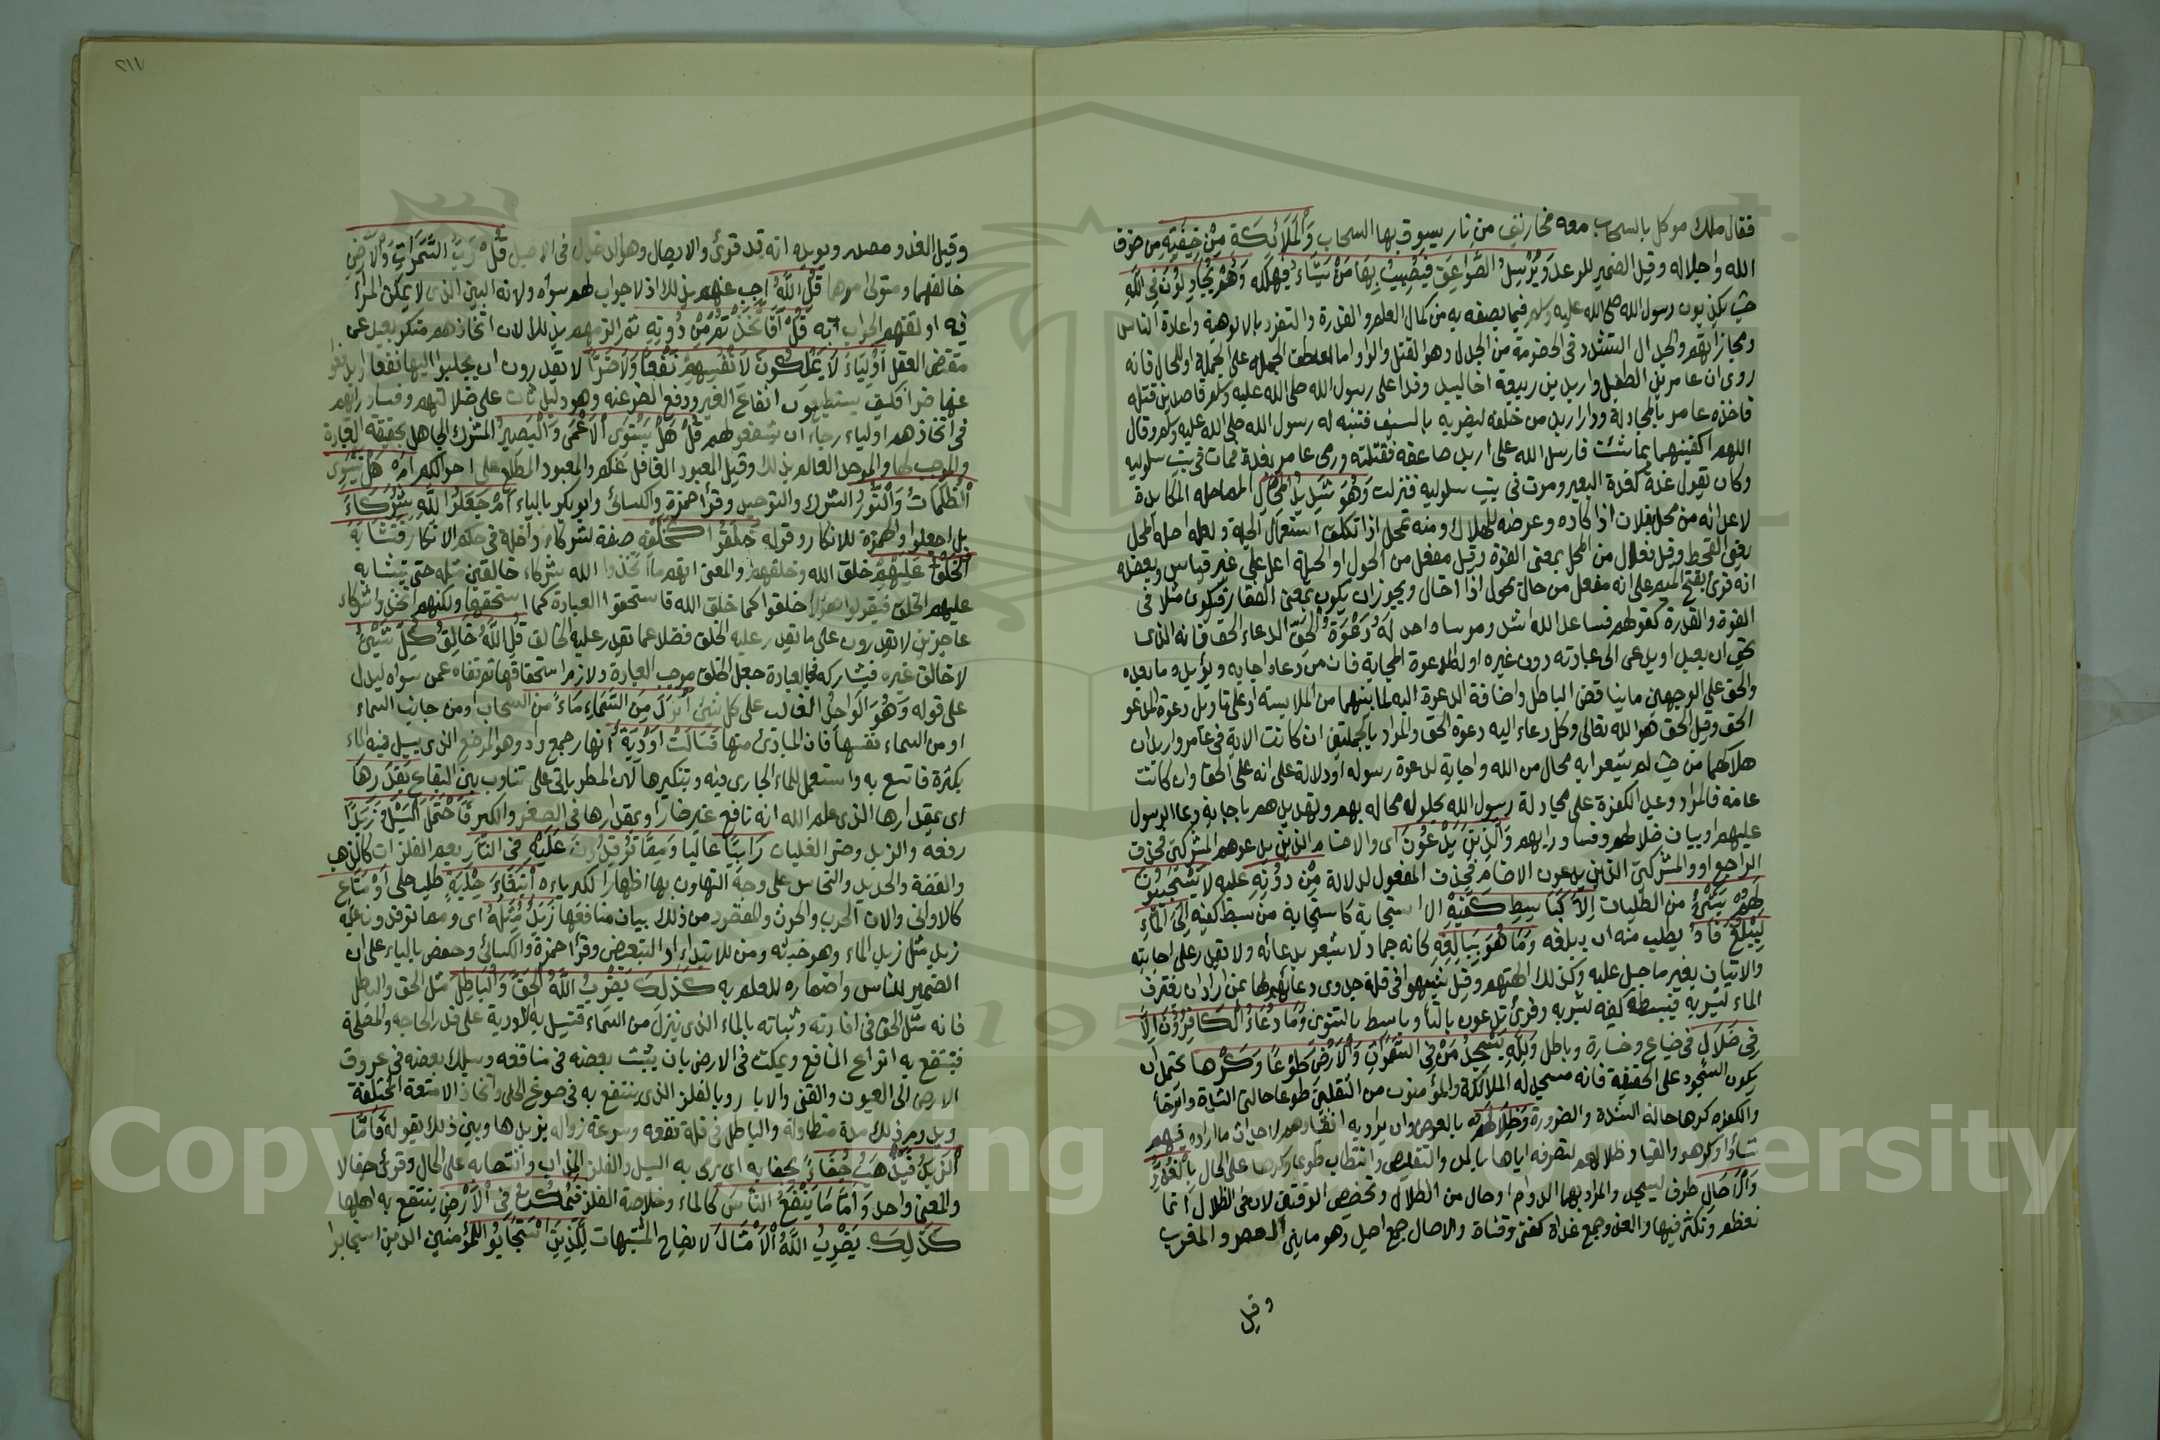 فقال ملك موكل بالسحاب معه مخاريق من نار يسوق بها السحاب وَالْمَلَائِكَةُ مِنْ خِيفَتِهِ من خوف
الله واجلاله وقيل الضمير للرعد وَيُرْسِلُ الصَّوَاعِقَ فَيُصِيبُ بِهَا مَنْ يَشَاءُ فيهلكه وَهُمْ يُجَادِلُونَ فِي اللَّهِ
حيث يكذبون رسول الله صلى الله عليه وسلم فيما يصفه به من كمال العلم والقدرة والتفرد بالالوهية واعادة الناس
ومجازاتهم والجدال التشدد في الخصومة من الجدل وهو الفتل والواو اما لعطف الجملة على الجملة او للحال فانه
روى ان عامر بن الطفيل واربد بن ربيعة اخا لبيد وفدا على رسول الله صلى الله عليه وسلم قاصدين قتله
فاخذه عامر بالمجادلة ودار اربد من خلفه ليضربه بالسيف فتنبه له رسول الله صلى الله عليه وسلم وقال
اللهم اكفنيهما بما شئت فارسل الله على اربد صاعقة فقتلته ورمى عامر بغدة فمات في بيت سلولية
وكان يقول غدة كغدة البعير وموت في بيت سلولية فنزلت وَهُوَ شَدِيدُ الْمِحَالِ المماحلة المكايدة
لاعدائه من محل بفلان اذا كاده وعرضه للهلاك ومنه تمحل اذا تكلف استعمال الحيلة ولعله اصله المحل
بمعنى القحط وقيل فعال من المحل بمعنى القوة وقيل مفعل من الحول او الحيلة اعل على غير قياس ويعضده
انه قرئ بفتح الميم على انه مفعل من حال يحول اذا احتال ويجوز ان يكون بمعنى الفقار فيكون مثلا في
القوة والقدرة كقولهم فساعد الله اشد وموساه احد لَهُ دَعْوَةُ الْحَقِّ الدعاء الحق فانه الذى
يحق ان يعبد او يدعى الى عبادته دون غيره او له الدعوة المجابة فان من دعاه اجابه ويؤيده ما بعده
والحق على الوجهين ما يناقض الباطل واضافة الدعوة اليه لما بينهما من الملابسة او على تاويل دعوة المدعو
الحق وقيل الحق هو الله تعالى وكل دعاء اليه دعوة الحق والمراد بالجملتين ان كانت الاية في عامر واربد ان
هلاكهما من حيث لم يشعرا به محال من الله واجابة لدعوة رسوله او دلالة على انه على الحق وان كانت
عامة فالمراد وعيد الكفرة على مجادلة رسول الله بحلول محاله بهم وتهديدهم باجابة دعاء الرسول
عليهم او بيان ضلالهم وفساد رايهم وَالَّذِينَ يَدْعُونَ اى والاصنام الذين يدعوهم المشركين فحذف
الراجع او والمشركين الذين يدعون الاصنام فحذف المفعول لدلالة مِنْ دُونِهِ عليه لَا يَسْتَجِيبُونَ
لَهُمْ بِشَيْءٍ من الطلبات إِلَّا كَبَاسِطِ كَفَّيْهِ الا استجابة كاستجابة من بسط كفيه إِلَى الْمَاءِ
لِيَبْلُغَ فَاهُ يطلب منه ان يبلغه وَمَا هُوَ بِبَالِغِهِ لانه جماد لا يشعر بدعائه ولا يقدر على اجابته
والاتيان بغير ما جبل عليه وكذلك الهتهم وقيل شبهوا في قلة جدوى دعائهم لها بمن اراد ان يغترف
الماء ليشربه فبسط كفيه ليشربه وقرئ تدعون بالتا وباسط بالتنوين وَمَا دُعَاءُ الْكَافِرِينَ إِلَّا
فِي ضَلَالٍ في ضياع وخسارة وباطل وَلِلَّهِ يَسْجُدُ مَنْ فِي السَّمَوَاتِ وَالْأَرْضِ طَوْعًا وَكَرْهًا يحتمل ان
يكون السجود على الحقيقة فانه يسجد له الملائكة والمؤمنون من الثقلين طوعا حالتى الشدة والرخا
والكفره كرها حالة الشدة والضرورة وَظِلَالُهُمْ بالعرض وان يراد به انقيادهم لاحداث ما اراده فيهم
شاؤا او كرهوا وانقياد ظلالهم لتصرفه اياها بالمد والتقليص وانتصاب طوعا وكرها على الحال بِالْغُدُوِّ
وَالْآصَالِ ظرف ليسجد والمراد بهما الدوام او حال من الظلال وتخصيص الوقتين لان الظلال انما
تعظم وتكثر فيها والغدو جمع غداة كقنى وقناة والاصال جمع اصيل وهو ما بين العصر والمغرب
وقيل
٢١٧
وقيل الغدو مصدر ويويده انه قد قرئ والايصال وهو الدخول في الاصيل قُلْ مَنْ رَبُّ السَّمَوَاتِ وَالْأَرْضِ
خالقهما ومتولى امرهما قُلِ اللَّهُ اجب عنهم بذلك اذ لا جواب لهم سواه ولانه البين الذى لا يمكن المراء
فيه او لقنهم الجواب به قُلْ أَفَاتَّخَذْتُمْ مِنْ دُونِهِ ثم الزمهم بذلك لان اتخاذهم منكر بعيد عن
مقتضى العقل أَوْلِيَاءَ لَا يَمْلِكُونَ لِأَنْفُسِهِمْ نَفْعًا وَلَا ضَرًّا لا يقدرون ان يجلبوا اليها نفعا او يدفعوا
عنها ضرا فكيف يستطيعون انفاع الغير ودفع الضر عنه وهو دليل ثان على ضلالتهم وفساد رايهم
في اتخاذهم اولياء رجاء ان يشفعوا لهم قُلْ هَلْ يَسْتَوِي الْأَعْمَى وَالْبَصِيرُ المشرك الجاهل بحقيقة العبادة
والموجب لها والموحد العالم بذلك وقيل المعبود الغافل عنكم والمعبود المطلع على احوالكم أَمْ هَلْ تَسْتَوِي
الظُّلُمَاتُ وَالنُّورُ الشرك والتوحيد وقرأ حمزة والكسائى وابوبكر بالياء أَمْ جَعَلُوا لِلَّهِ شُرَكَاءَ
بل اجعلوا والهمزة للانكار وقوله خَلَقُوا كَخَلْقِهِ صفة لشركاء داخلة في حكم الانكار فَتَشَابَهَ
الْخَلْقُ عَلَيْهِمْ خلق الله وخلقهم والمعنى انهم ما اتخذوا الله شركاء خالقين مثله حتى يتشابه
عليهم الخلق فيقولوا هولاء خلقوا كما خلق الله فاستحقوا العبادة كما استحقها ولكنهم اتخذوا شركاء
عاجزين لا يقدرون على ما يقدر عليه الخلق فضلا عما يقدر عليه الخالق قُلِ اللَّهُ خَالِقُ كُلِّ شَيْءٍ
لا خالق غيره فيشاركه فى العبادة جعل الخلق موجب العبادة ولازم استحقاقها ثم نفاه عمن سواه ليدل
على قوله وَهُوَ الْوَاحِدُ الغالب على كل شئ أَنْزَلَ مِنَ السَّمَاءِ مَاءً من السحاب او من جانب السماء
او من السماء نفسها فان المبادئ منها فَسَالَتْ أَوْدِيَةٌ انهار جمع واد وهو الموضع الذى يسيل فيه الماء
بكثرة فاتسع به واستعمل للماء الجارى فيه وتنكيرها لان المطر ياتى على تناوب بين البقاع بِقَدَرِهَا
اى بمقدارها الذى علم الله انه نافع غير ضار او بمقدارها في الصغر والكبر فَاحْتَمَلَ السَّيْلُ زَبَدًا
رفعه والزبد وضر الغليان رَابِيًا عاليا وَمِمَّا تُوقِدُونَ عَلَيْهِ فِي النَّارِ يعم الفلزات كالذهب
والفضة والحديد والنحاس على وجه التهاون بها اظهارا لكبريائه ابْتِغَاءَ حِلْيَةٍ طلب حلى أَوْ مَتَاعٍ
كالاوانى والات الحرب والحرث والمقصود من ذلك بيان منافعها زَبَدٌ مِثْلُهُ اى ومما توقدون عليه
زبد مثل زبد الماء وهو خبثه ومن للابتداء او للتبعيض وقرأ حمزة والكسائى وحفص بالياء على ان
الضمير للناس واضماره للعلم به كَذَلِكَ يَضْرِبُ اللَّهُ الْحَقَّ وَالْبَاطِلَ مثل الحق والباطل
فانه مثل الحق في افادته وثباته بالماء الذى ينزل من السماء فتسيل به الاودية على قدر الحاجه والمصلحة
فينتفع به انواع المنافع ويمكث في الارض بان يثبت بعضه في منافعه ويسلك بعضه في عروق
الارض الى العيون والقنى والابار وبالفلز الذى ينتفع به في صوغ الحلى واتخاذ الامتعة المختلفة
ويدوم ذلك مدة متطاولة والباطل في قلة نفعه وسرعة زواله بزبدها وبين ذلك بقوله فَأَمَّا
الزَّبَدُ فَيَذْهَبُ جُفَاءً يجفا به اى يرمى به السيل والفلز المذاب وانتصابه على الحال وقرئ جفالا
والمعنى واحد وَأَمَّا مَا يَنْفَعُ النَّاسَ كالماء وخلاصة الفلز فَيَمْكُثُ فِي الْأَرْضِ ينتفع به اهلها
كَذَلِكَ يَضْرِبُ اللَّهُ الْأَمْثَالَ لايضاح المشتبهات لِلَّذِينَ اسْتَجَابُوا للمؤمنين الذين استجابوا
1957
Copyright © King Saud University